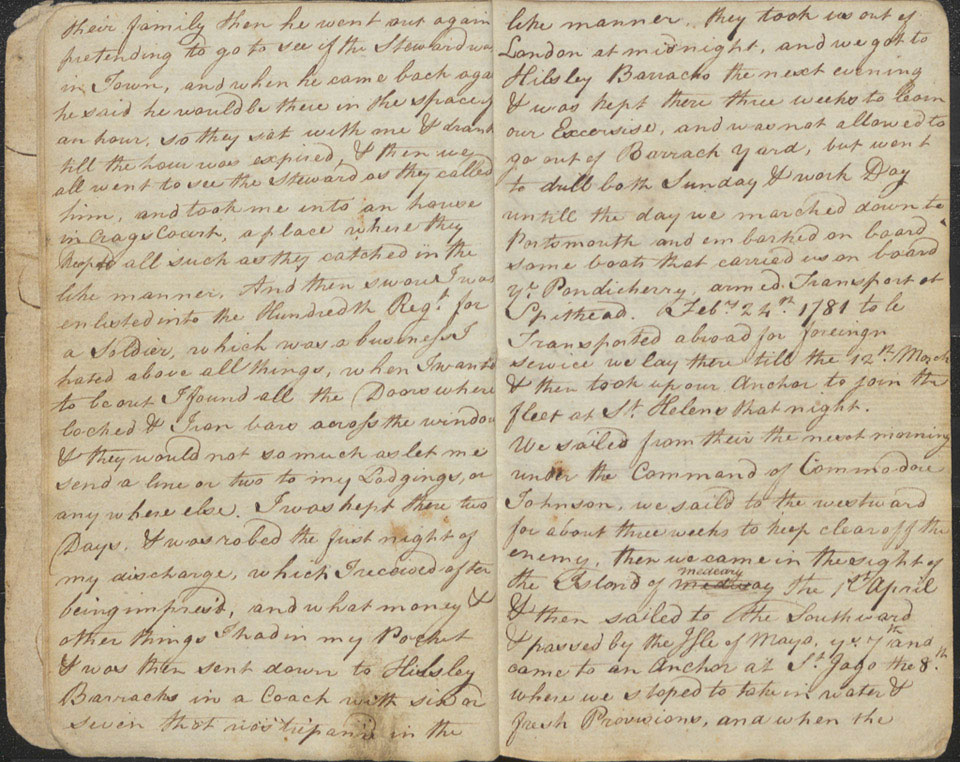 their family then he went out again
pretending to go to see if the Steward was
in Town, and when he came back again
he said he would be there in the space of
an hour, so they sat with me & drank
till the hour was expired, & then we
all went to see the Steward as they called
him, and took me into an house
in Crags Court, a place where they
all such as they catched in the
like manner. And then swore I was
enlisted into the Hundredth Regt. for
a Soldier, which was a business I
hated above all things, when I wanted
to be out I found all the Doors where
locked & Iron bars across the window
& they would not so much as let me
send a line or two to my Lodgings, or
any where else. I was kept there two
Days. & was robed the fust night of
my discharge, which I receved after
being impres'd, and what money &
other things I had in my Pocket
& was then sent down to Hilsley
Barracks in a Coach with six or
seven that was tripand in the
like manner. they took us out of
London at midnight, and we got to
Hilsley Barracks the next evening
& was kept there three weeks to learn
our Excersise, and was not allowed to
go out of Barrack yard, but went
to drill both Sunday & work Day
untill the day we marched down to
Portsmouth and embarked on board
some boats that carried us on board
ye. Pondicherry, armed Transport at
Spithead. Feby. 24th. 1781 to be
Transported abroad for foreign
service we lay there till the 12th. March
& then took up our Anchor to join the
fleet at St. Helens that night.
We sailed from their the next morning
under the Command of Commodore
Johnson, we saild to the westward
for about three weeks to keep clear off the
enemy, then we came in the sight of
the Island of medeary the 1st April
& then sailed to the Southward
& passed by the Isle of Mayo, ye. 7th and
came to an Anchor at St. Jago the 8.th
where we stoped to take in water &
fresh Provisions, and when the